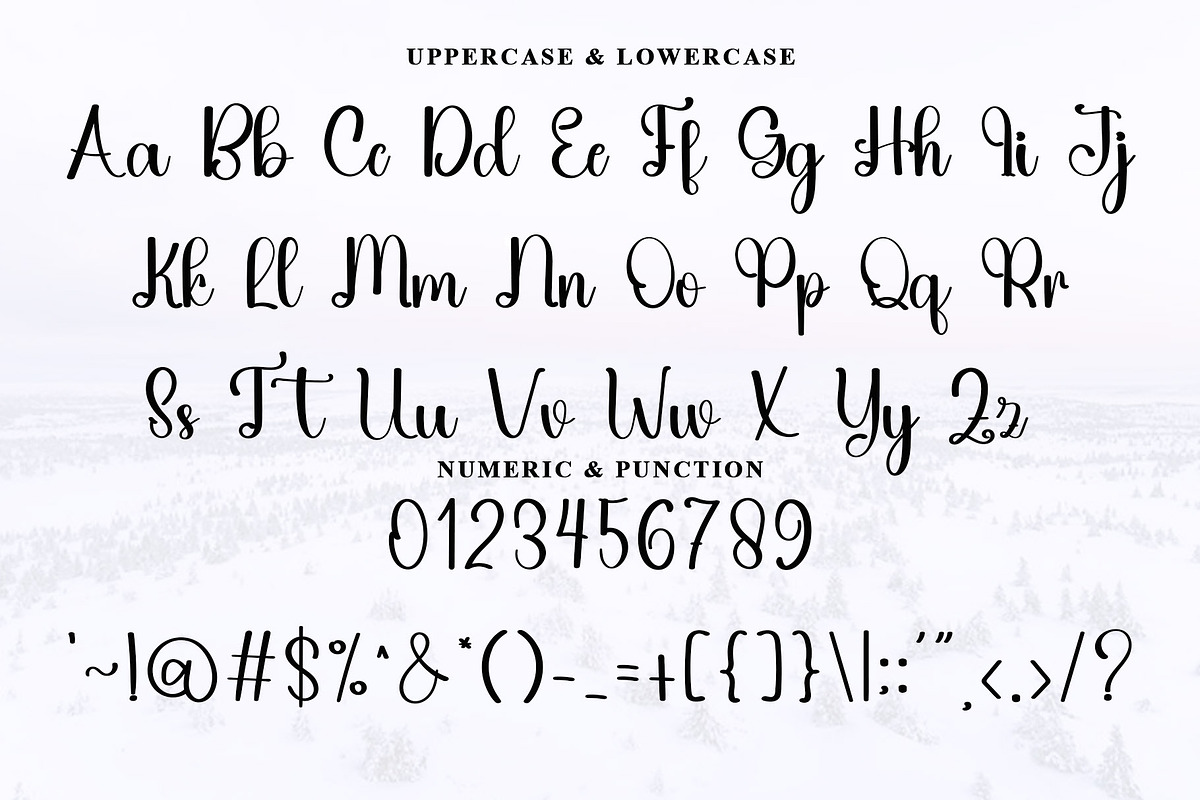 UPPERCASE & LOWERCASE
Aa Bb Cc Dd Ee Ff Gg Hh Ii Jj
Kk Ll Mm Nn Oo Pp Qq Rr
Ss Tt Uu Vv Ww X Yy Zz
NUMERIC & PUNCTION
0123456789
'~!@#$%^&*()-_=+[{]}\|;:'",<.>/?